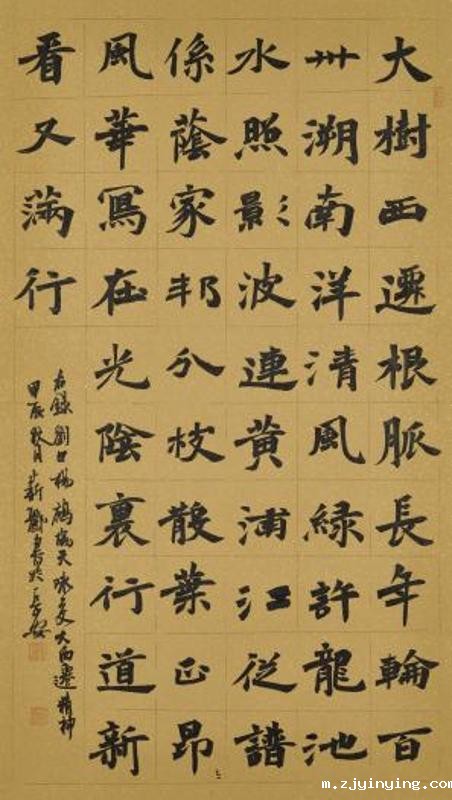 大樹西遷根脈長年輪百
卅溯南洋清風綠許龍池
水照影波連黃浦江從譜
係蔭家邦分枝散葉正昂
風華寫在光陰裏行道新
看又滿行
右錄劉 鴣天咏交大西遷精神
甲辰秋月靳 書於長安
m.zjyinying.com